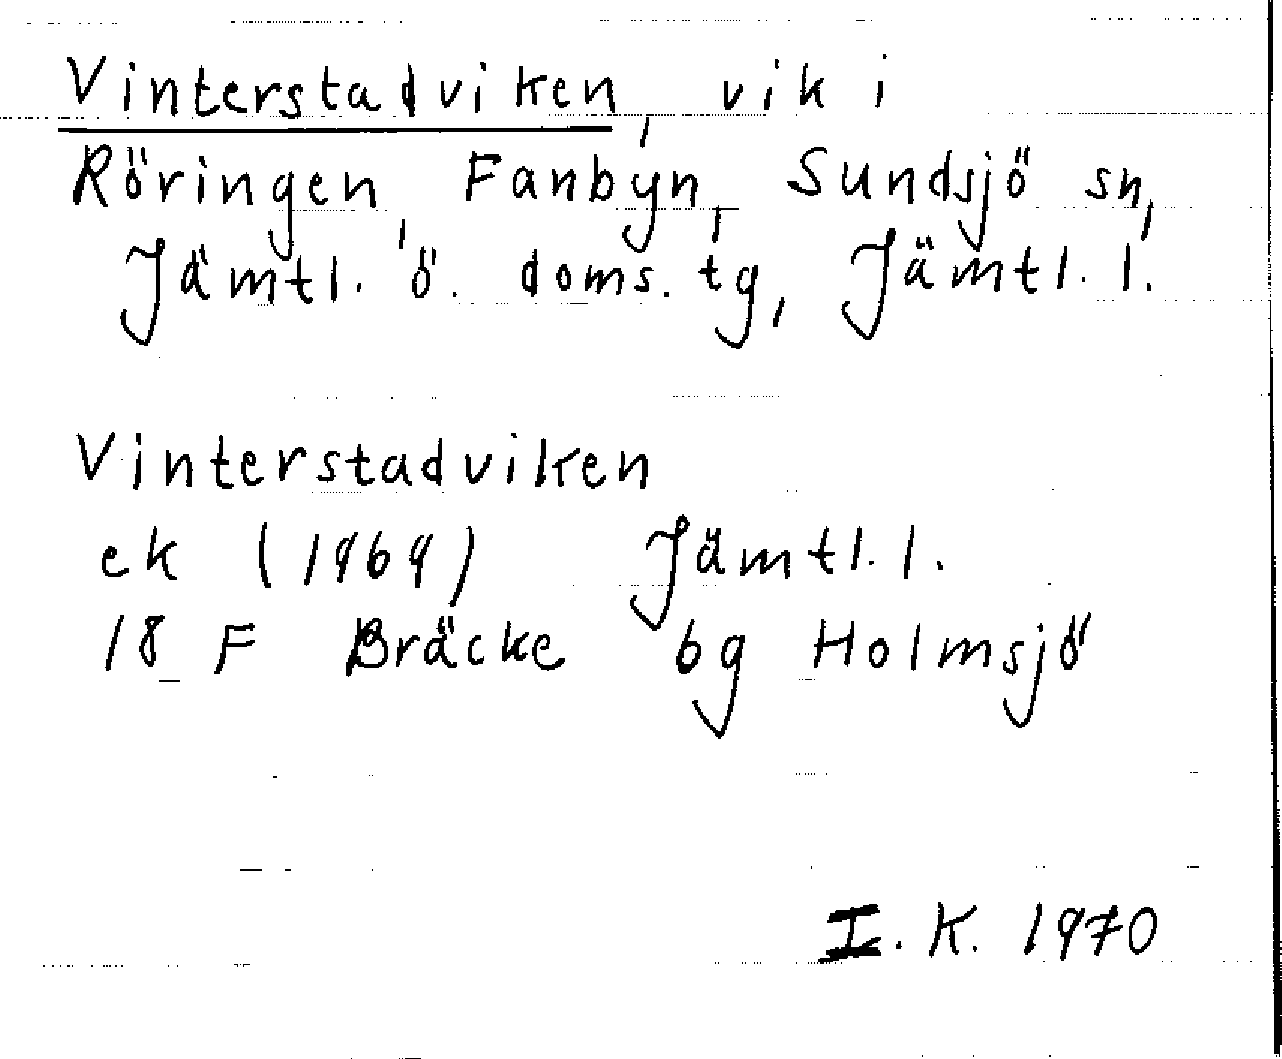 Vinterstadviken, vik i
Röringen, Fanbyn, Sundsjö sn,
Jämtl. ö. doms. tg, Jämtl. l.
Vinterstadviken
ek (1969) Jämtl. l.
18 F Bräcke bg Holmsjö
I. K. 1970